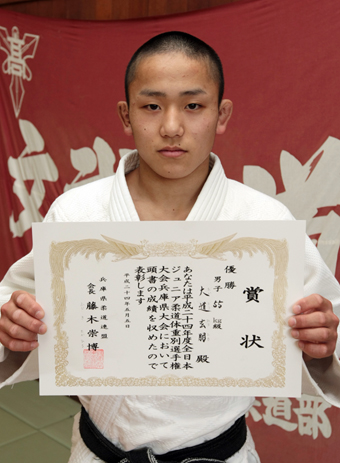 賞状
優勝
男子 55 kg級
大道玄勝 殿
あなたは平成二十四年度全日本
ジュニア柔道体重別選手権
大会兵庫県大会において
頭書の成績を収めたので
表彰します
兵庫県柔道連盟
会長 藤木崇博
高
道
柔道部